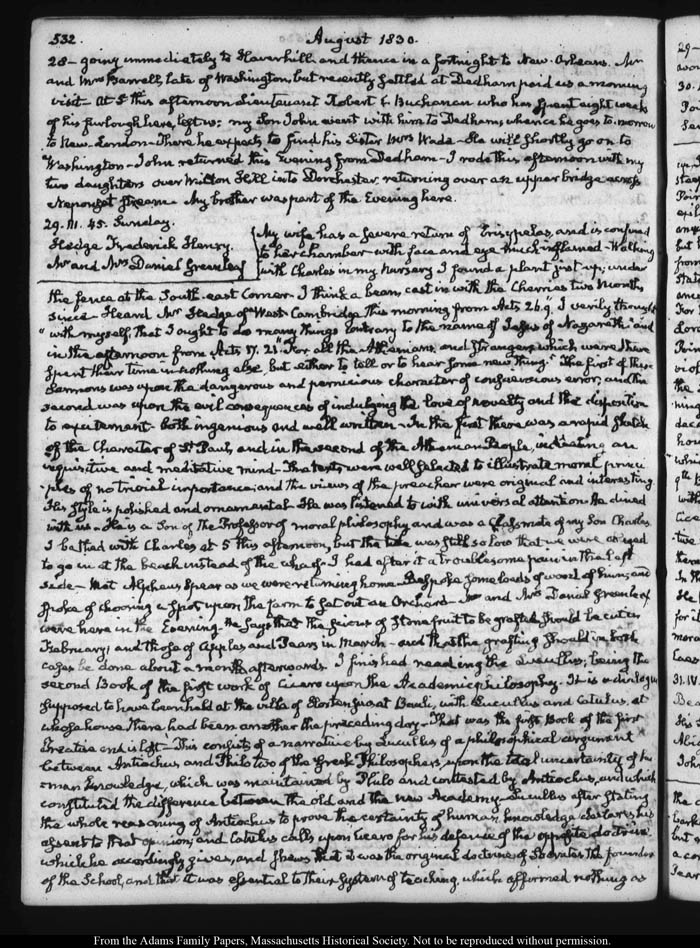 532.
August 1830.
28 - going immediately to Haverhill and thence in a fortnight to New-Orleans. Mr
and Mrs Barrell, late of Washington, but recently settled at Dedham paid us a morning
visit - At 5 this afternoon Lieutenant Robert C. Buchanan who has spent eight weeks
of his furlough here, left us; my Son John went with him to Dedham, whence he goes to-morrow
to New-London - There he expects to find his Sister Mrs Wade - He will shortly go on to
Washington - John returned this Evening from Dedham - I rode this afternoon with my
two daughters over Milton Hill into Dorchester, returning over an upper bridge across
Neponset Stream - My brother was part of the Evening here.
29. III. 45. Sunday.
Hedge Frederick Henry.
Mr and Mrs Daniel Greenleaf
My wife has a severe return of Erisypelas, and is confined
to her chamber - with face and eye much inflamed - Walking
with Charles in my Nursery I found a plant just up, under
the fence at the South-east Corner - I think a bean, cast in with the Cherries two Months
since - Heard Mr Hedge of West-Cambridge this morning from Acts 26.9. "I verily thought
"with myself, that I ought to do many things contrary to the name of Jesus of Nazareth" and
in the afternoon from Acts 17. 21 "For all the Athenians, and strangers which were there
Spent their time in nothing else, but either to tell or to hear some new thing." The first of these
Sermons was upon the dangerous and pernicious character of conscientious error; and the
second was upon the evil consequences of indulging the love of novelty and the disposition
to excitement - both ingenious and well written - In the first there was a rapid sketch
of the Character of St Paul, and in the second of the Athenian People, indicating an
inquisitive and meditative mind - The texts were well selected to illustrate moral princi
-ples of no trivial importance; and the views of the preacher were original and interesting
His style is polished and ornamental - He was listened to with universal attention - He dined
with us - He is a Son of the Professor of moral philosophy and was a Classmate of my Son Charles.
I bathed with Charles at 5 this afternoon, but the tide was still so low that we were obliged
to go in at the beach instead of the wharf - I had after it a troublesome pain in the left
side - Met Alpheus Spear as we were returning home - Bespoke some loads of wood of him; and
spoke of choosing a spot upon the farm to set out an Orchard - Mr and Mrs Daniel Greenleaf
were here in the Evening. He says that the scions of Stone fruit to be grafted should be cut in
February; and those of Apples and Pears in March - and that the grafting should in both
cases be done about a month afterwards. I finished reading the Lucullus; being the
second Book of the first work of Cicero upon the Academic philosophy. It is a dialogue
supposed to have been held at the villa of Hortensius at Bauli, with Lucullus and Catulus, at
whose house there had been another the preceding day - That was the first Book of the first
treatise and is lost - This consists of a narrative by Lucullus of a philosophical argument
between Antiochus and Philo two of the Greek Philosophers, upon the total uncertainty of hu
man knowledge, which was maintained by Philo and contested by Antiochus, and which
constituted the difference between the old and the new Academy - Lucullus after stating
the whole reasoning of Antiochus to prove the certainty of human knowledge declares his
assent to that opinion; and Catulus calls upon Cicero for his defence of the opposite doctrine
which he accordingly gives, and shews that it was the original doctrine of Socrates the founder
of the School, and that it was essential to their system of teaching, which affirmed nothing as
From the Adams Family Papers, Massachusetts Historical Society. Not to be reproduced without permission.